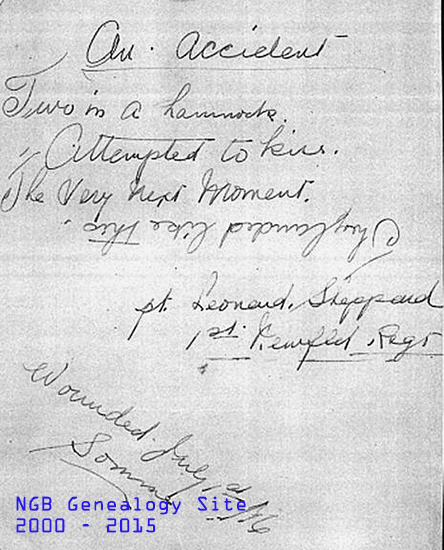 An. Accident
Two in a hammock.
Attempted to kiss.
The Very Next Moment.
They landed like this.
pt. Leonard. Sheppard
1st. Newflld. Regt
Wounded. July 1st
Somme
NGB Genealogy Site
2000 - 2015